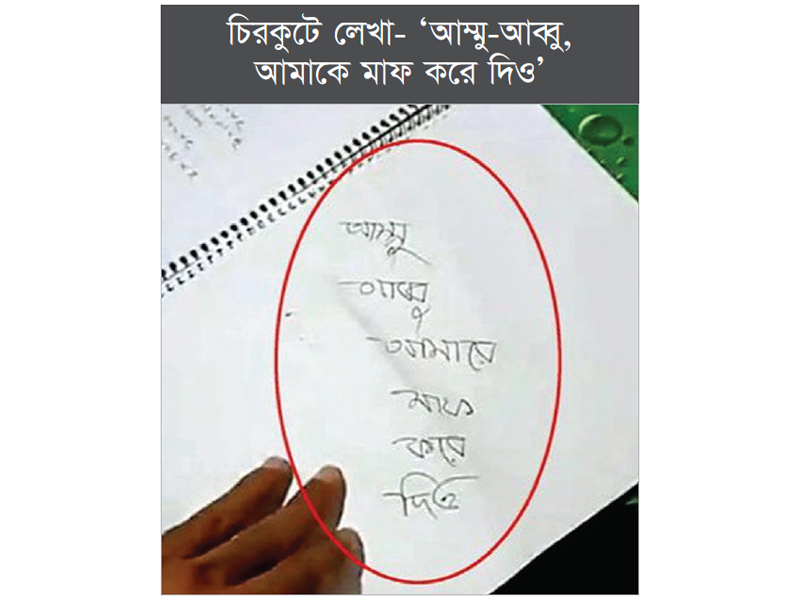 চিরকুটে লেখা- ‘আম্মু-আব্বু,
আমাকে মাফ করে দিও’
আম্মু
আব্বু
আমারে
মাফ
করে
দিও